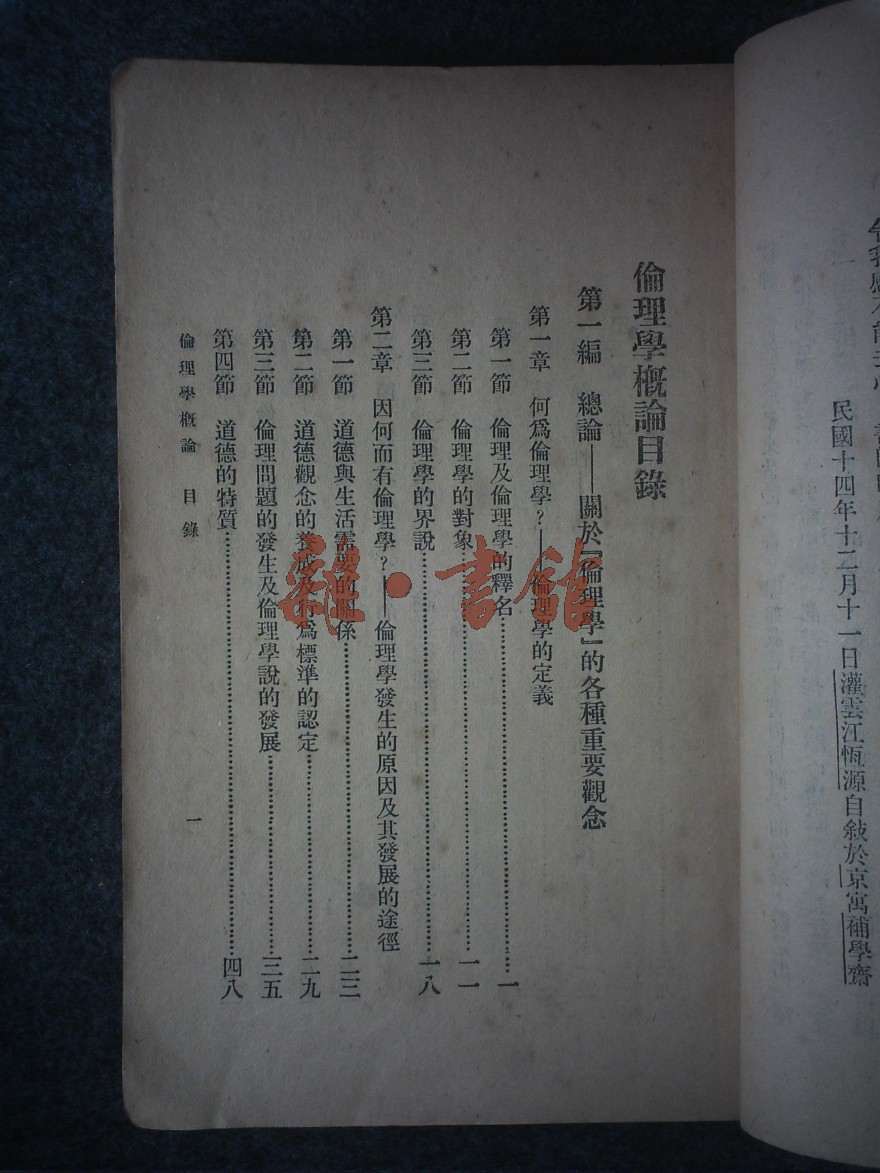 民國十四年十二月十一日灌雲江恆源自敍於京寓補學齋
倫理學概論目錄
第一編 總論——關於『倫理學』的各種重要觀念
第一章 何爲倫理學?——倫理學的定義
第一節 倫理及倫理學的釋名…………一
第二節 倫理學的對象…………一一
第三節 倫理學的界說…………一八
第二章 因何而有倫理學?——倫理學發生的原因及其發展的途徑
第一節 道德與生活需要的關係…………二三
第二節 道德觀念的養成及行爲標準的認定…………二九
第三節 倫理問題的發生及倫理學說的發展…………三五
第四節 道德的特質…………四八
倫理學概論 目錄
一
雜·書館